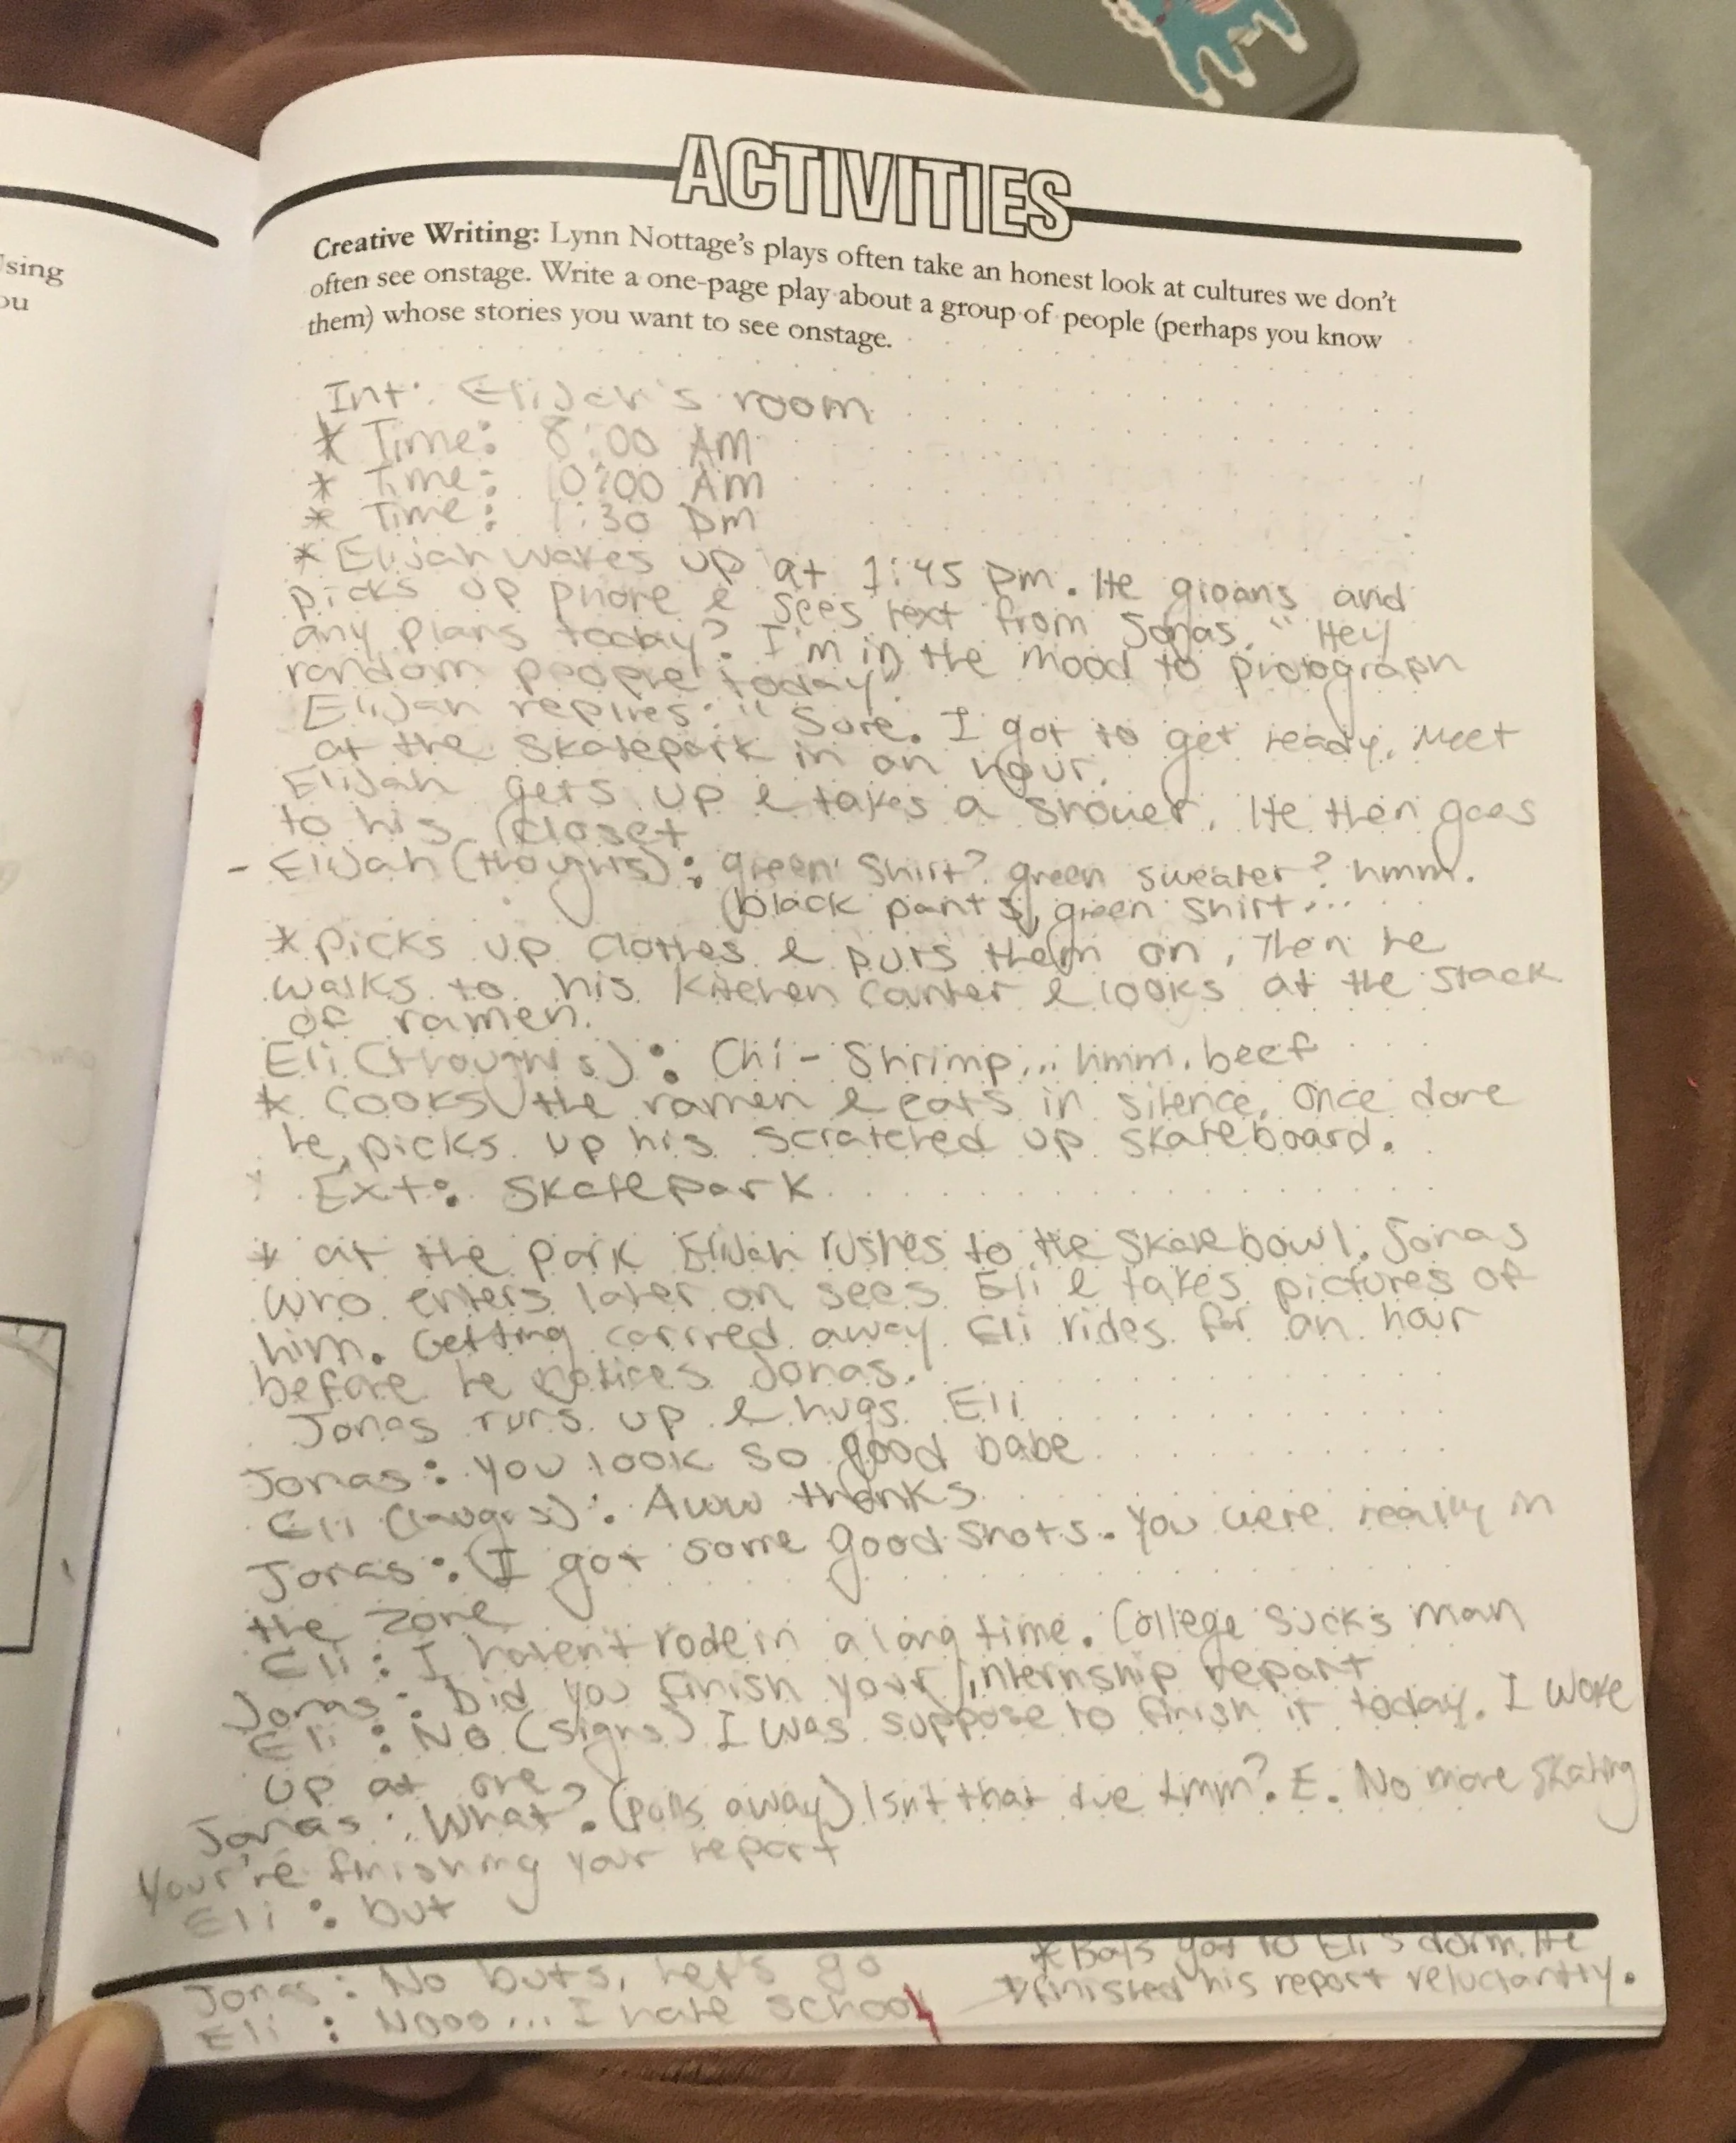 using
ou
ACTIVITIES
Creative Writing: Lynn Nottage's plays often take an honest look at cultures we don't
often see onstage. Write a one-page play about a group of people (perhaps you know
them) whose stories you want to see onstage.
Int: Elijah's room
* Time: 8:00 AM
* Time: 10:00 AM
* Time: 1:30 pm
* Elijah wakes up at 1:45 pm. He groans and
picks up phone & sees text from Jonas. "Hey
any plans today? I'm in the mood to photograph
random people today".
Elijah replies: "Sure. I got to get ready. Meet
at the skatepark in an hour.
Elijah gets up & takes a shower. He then goes
to his closet
- Elijah (thoughts): green shirt? green sweater? hmm.
black pants, green shirt...
* picks up clothes & puts them on, Then he
walks to his kitchen counter & looks at the stack
of ramen.
Eli (thoughts): Chi - Shrimp... hmm. beef
* Cooks the ramen & eats in silence. Once done
he picks up his scratched up skateboard.
Ext: Skatepark
* at the park Elijah rushes to the skate bowl. Jonas
who enters later on sees Eli & takes pictures of
him. Getting carried away Eli rides for an hour
before he notices Jonas.
Jonas runs up & hugs Eli
Jonas: you look so good babe
Eli (laughs): Aww thanks
Jonas: I got some good shots. You were really in
the zone
Eli: I haven't rode in a long time. College sucks man
Jonas: Did you finish your internship report
Eli: No (sighs) I was suppose to finish it today. I woke
up at one
Jonas: What? (pulls away) Isn't that due tmm? E. No more skating
Your're finishing your report
Eli: but
Jonas: No buts, let's go
Eli: Nooo... I hate school
* Boys got to Eli's dorm. He
finished his report reluctantly.